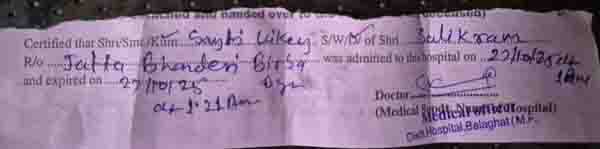 and handed over to
Certified that Shri/Smt/Kum Uikey S/W/D of Shri Salikram
R/o Jatta Bhanderi Birsa was admitted to this hospital on 27/10/25 at
and expired on 27/10/25 1 Am
at 1:21 Am
Doctor
(Medical Hospital)
Medical Officer
Dist. Hospital, Balaghat (M.P.